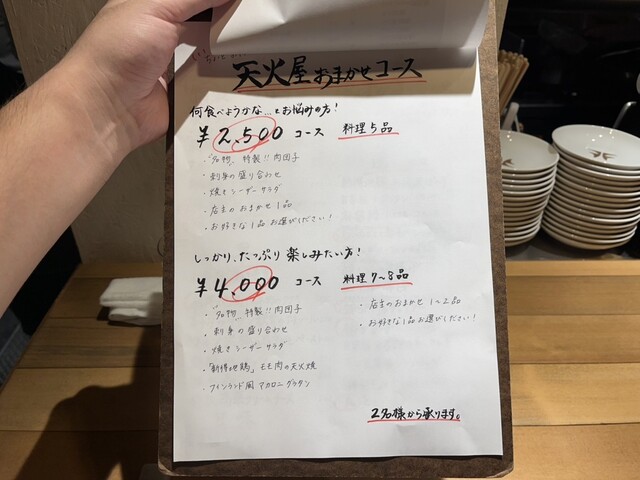 天火屋おまかせコース
何食べようかな...とお悩みの方！
¥2,500 コース 料理5品
・"名物" 特製!! 肉団子
・刺身の盛り合わせ
・焼きシーザーサラダ
・店主のおまかせ1品
・お好きな1品お選びください！
しっかり、たっぷり楽しみたい方！
¥4,000 コース 料理7〜8品
・"名物" 特製!! 肉団子
・刺身の盛り合わせ
・焼きシーザーサラダ
・「新得地鶏」もも肉の天火焼
・フィンランド風マカロニグラタン
・店主のおまかせ1〜2品
・お好きな1品お選びください！
2名様から承ります。